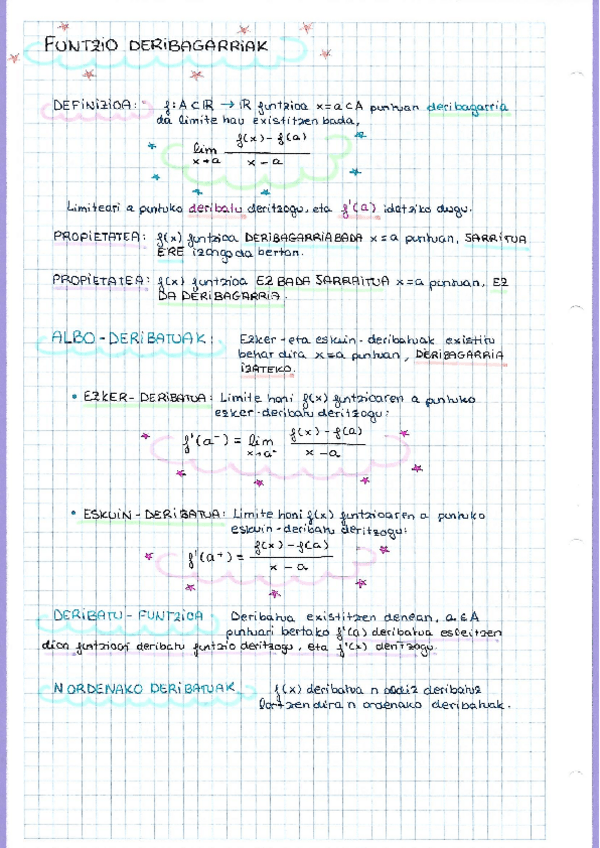 FUNTZIO DERIBAGARRIAK
DEFINIZIOA: f: A ⊂ ℝ → ℝ funtzioa x=a ⊂ A puntuan deribagarria
da limite hau existitzen bada,
lim x→a (f(x) - f(a)) / (x - a)
Limiteari a puntuko deribatu deritzogu, eta f'(a) idatziko dugu.
PROPIETATEA: f(x) funtzioa DERIBAGARRIA BADA x=a puntuan, JARRITUA
ERE izango da bertan.
PROPIETATEA: f(x) funtzioa EZ BADA JARRAITUA x=a puntuan, EZ
DA DERIBAGARRIA.
ALBO-DERIBATUAK: Ezker-eta eskuin-deribatuak existitu
behar dira x=a puntuan, DERIBAGARRIA
IZATEKO.
• EZKER-DERIBATUA: Limite honi f(x) funtzioaren a puntuko
ezker-deribatu deritzogu:
f'(a⁻) = lim x→a⁻ (f(x) - f(a)) / (x - a)
• ESKUIN-DERIBATUA: Limite honi f(x) funtzioaren a puntuko
eskuin-deribatu deritzogu:
f'(a⁺) = (f(x) - f(a)) / (x - a)
DERIBATU-FUNTZIOA Deribatua existitzen denean, a ∈ A
puntuari bertako f'(a) deribatua esleitzen
dion funtzioari deribatu funtzio deritzogu, eta f'(x) deritzogu.
N ORDENAKO DERIBATUAK f(x) deribatua n aldiz deribatuz
lortzen dira n ordenako deribatuak.